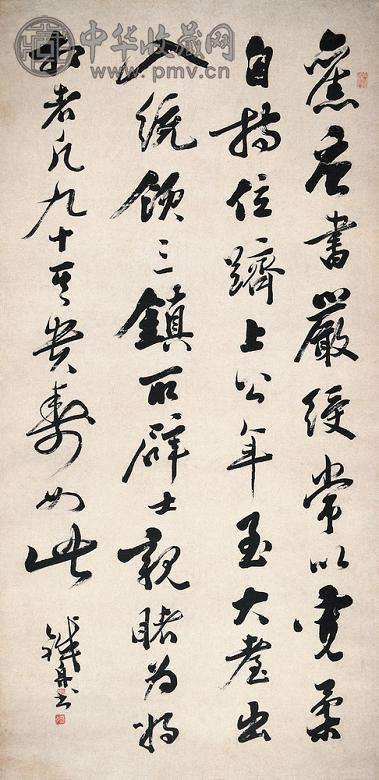 中华收藏网
www.pmv.cn
舊唐書嚴綬常以寬柔
自持位躋上公年至大耋出
入統領三鎮所辟士親睹為將
相者凡九十其貴壽如此
鐵舟書